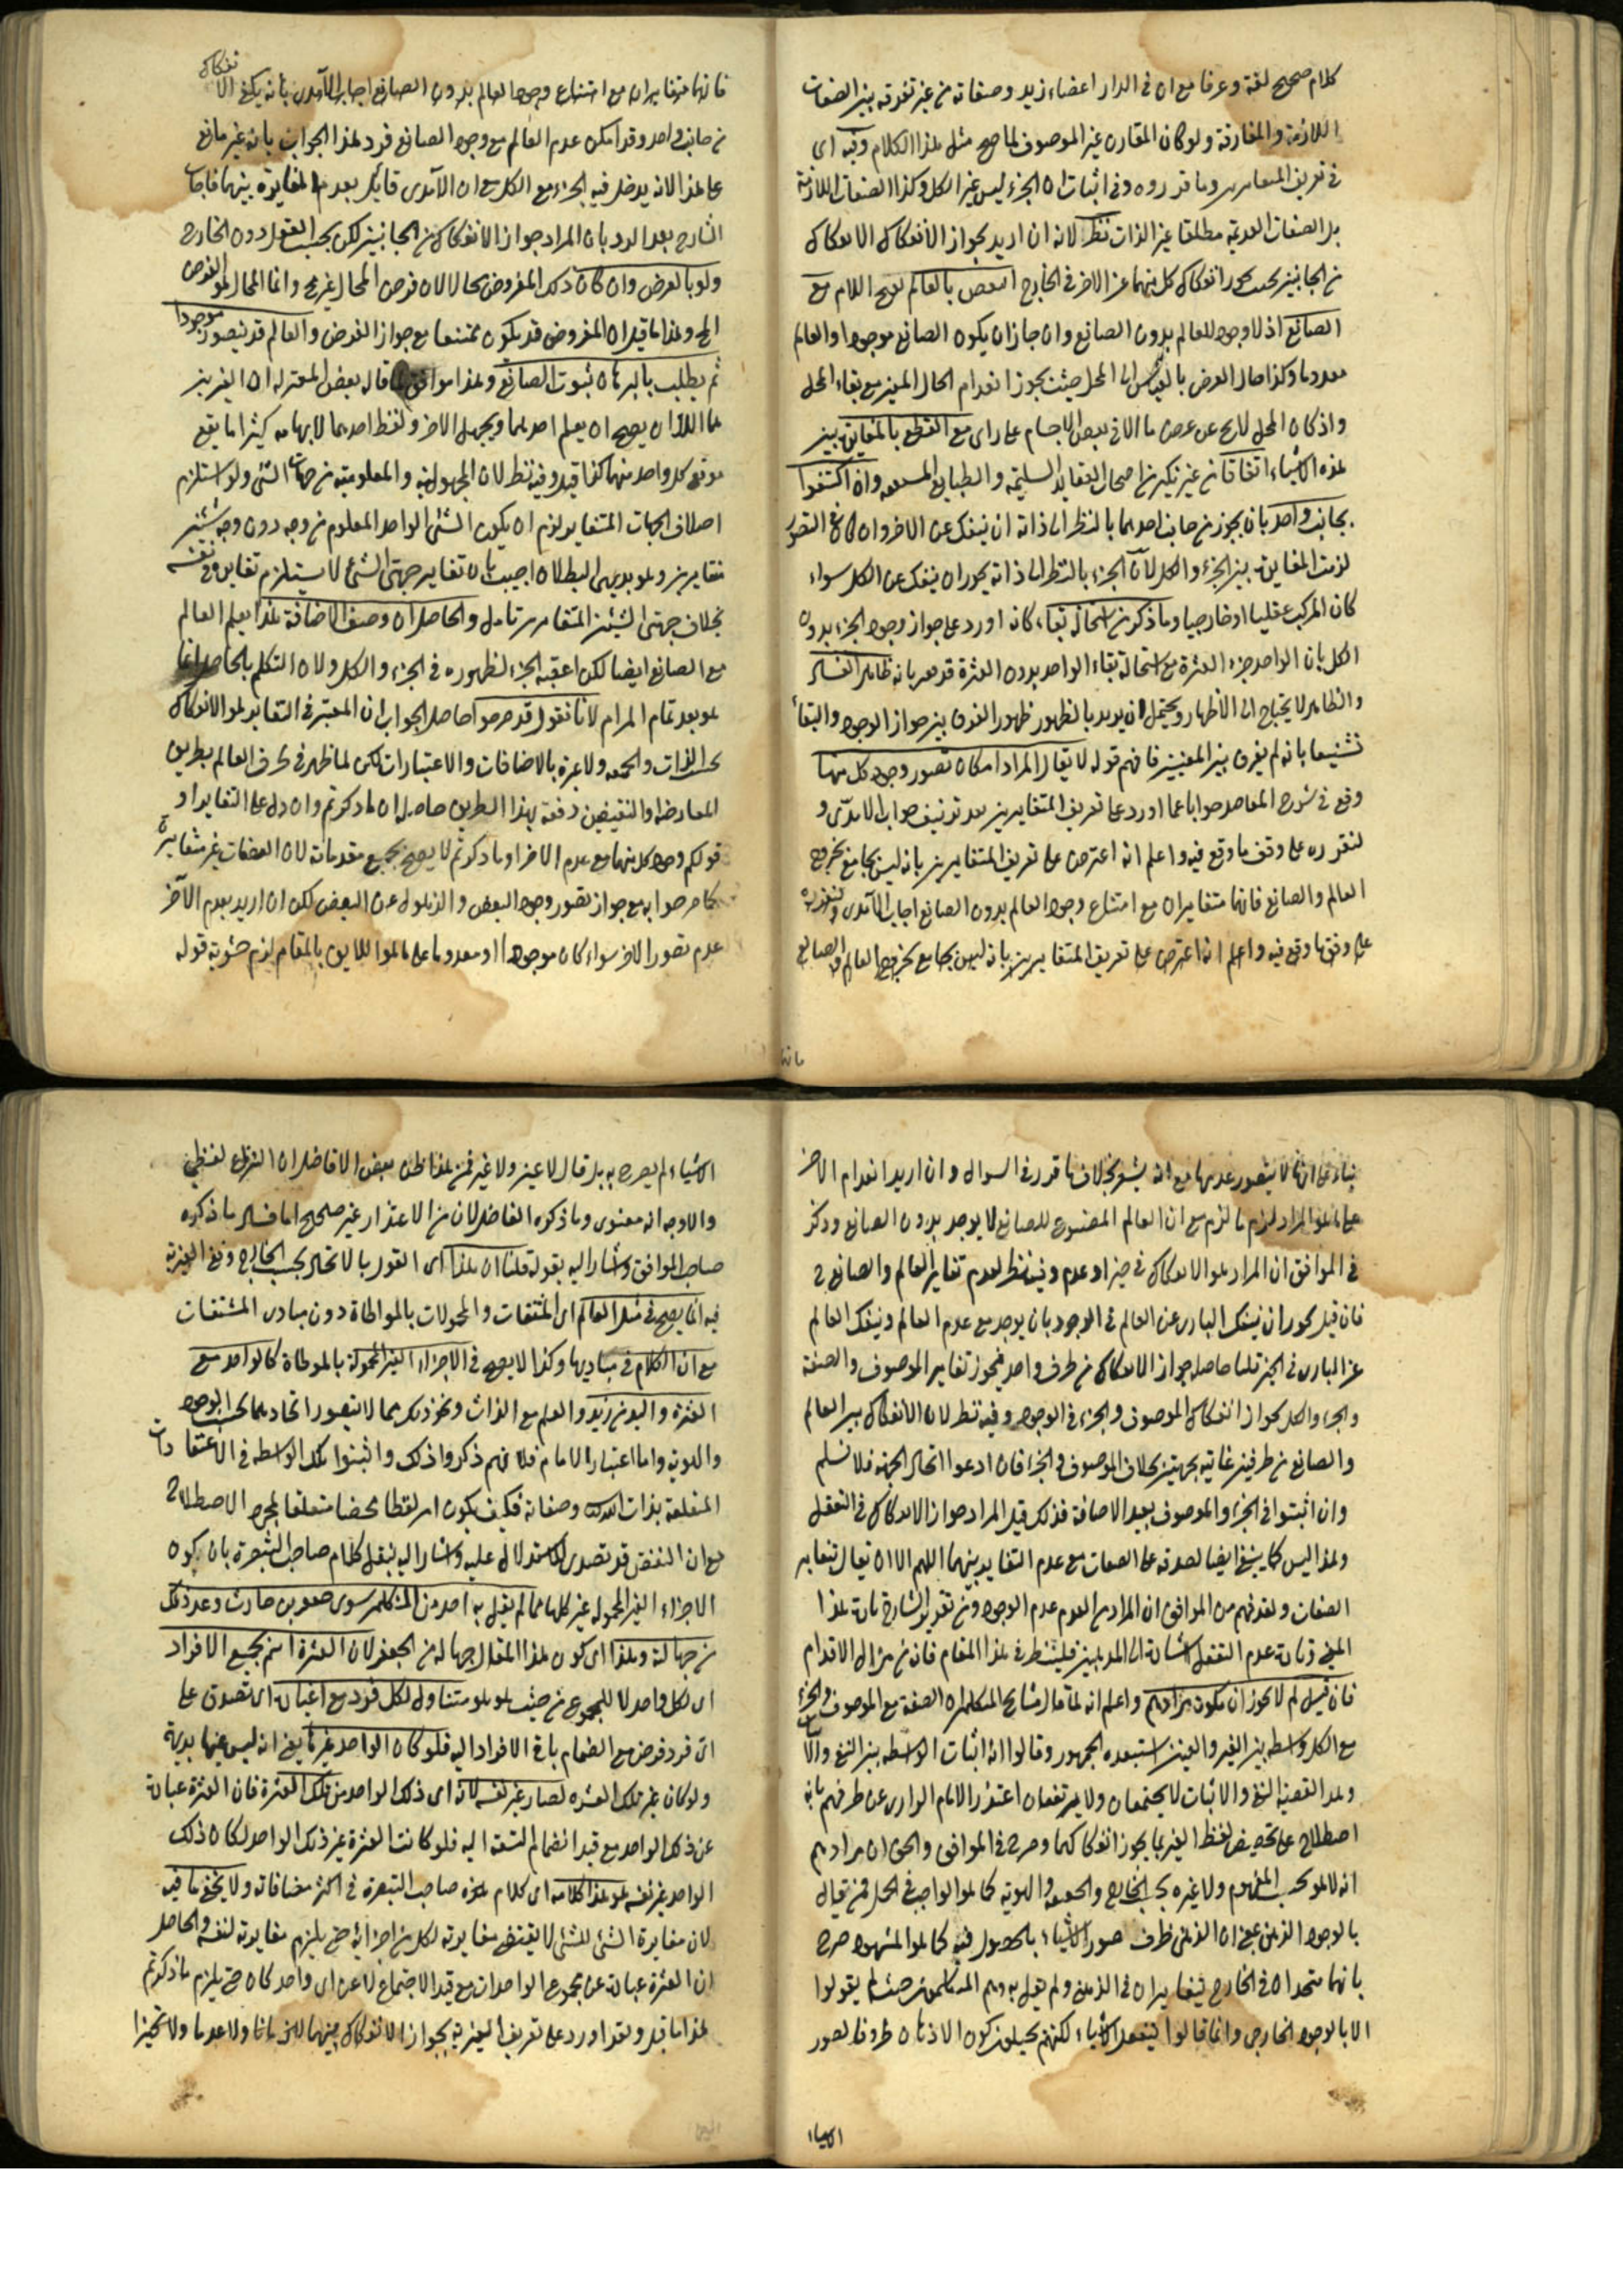 كلام صحيح لغة وعرفا مع ان في الدار اعضاء زيد وصفاته من غير تفرقة بين الصفات
اللازمة والمفارقة ولو كان المقارن غير الموصوف لما صح مثل هذا الكلام وفيه اى
في تعريف وما قرروه وفي اثبات ان الجزء ليس غير الكل وكذا الصفات اللازمة
بل الصفات القديمة مطلقا غير الذات نظر لانه ان اريد بجواز الانفكاك الانفكاك
من الجانبين بحيث يجوز انفكاك كل منهما عن الاخر في الخارج انتقض بالعالم مع
الصانع اذ لا وجود للعالم بدون الصانع وان جاز ان يكون الصانع موجودا والعالم
معدوما وكذا حال العرض بالقياس الى المحل حيث يجوز انعدام الحال المعين مع بقاء المحل
واذ كان المحل لا يخ عن عرض ما الا في بعض الاجسام على راى مع القطع بالمغايرة بين
هذه الاشياء اتفاقا من غير نكير من اصحاب العقايد السليمة والطبايع وان اكتفوا
بجانب واحد بان يجوز من جانب احدهما بالنظر الى ذاته ان ينفك عن الاخر وان التصور
لزمت المغايرة بين الجزء والكل لان الجزء بالنظر الى ذاته يجوز ان ينفك عن الكل سواء
كان المركب عقليا او خارجيا وما ذكر من استحالة بقاء كانه اورد على جواز وجود الجزء بدون
الكل بان الواحد جزء العشرة مع استحالة بقاء الواحد بدون العشرة قد بانه ظاهر الفساد
والظاهر لا يحتاج الى الاظهار ويحتمل ان يريد بالظهور ظهور الفرق بين جواز الوجود والبقاء
تشنيعا بانه لم يفرق بين المعنيين فافهم قوله لا يقال المراد امكان تصور وجود كل منهما
وقع في شرح المقاصد جوابا عما اورد على تعريف المتغايرين بعد تزييف جواب الامدى و
لنقرره على وفق ما وقع فيه واعلم انه اعترض على تعريف المتغايرين بانه ليس بجامع بخروج
العالم والصانع فانهما متغايران مع امتناع وجود العالم بدون الصانع اجاب الآمدى ولنقرره
على وفق ما وقع فيه واعلم انه اعترض على تعريف المتغايرين بانه ليس بجامع بخروج العالم والصانع
فانهما
فانهما متغايران مع امتناع وجود العالم بدون الصانع اجاب الآمدى بانه يكفى الانفكاك
من جانب واحد وقد امكن عدم العالم مع وجود الصانع فرد هذا الجواب بانه غير مانع
على هذا لانه يدخل فيه الجزء مع الكل مع ان الآمدى قايل بعدم المغايرة بينهما فاجاب
الشارح بعد الرد بان المراد جواز الانفكاك من الجانبين لكن بحسب العقل دون الخارج
ولو بالفرض وان كان ذلك المفروض محالا لان فرض المحال غير مح وانما المحال هو الفرض
المح وهذا ما قيل ان المفروض قد يكون ممتنعا مع جواز الفرض والعالم قد يتصور موجودا
ثم يطلب بالبرهان ثبوت الصانع وهذا موافق لما قاله بعض المعتزلة ان الغيرين
هما اللذان يصح ان يعلم احدهما ويجهل الاخر ولفظ احدهما لابهامه كثيرا ما يقع
موقع كل واحد منهما كذا قيل وفيه نظر لان المجهولية والمعلومية من جهات الشئ ولو استلزم
اختلاف الجهات المتغاير لزم ان يكون الشئ الواحد المعلوم من وجه دون وجه شيئين
متغايرين وهو بديهى البطلان اجيب بان تغاير جهتى الشئ لا يستلزم تغايره في نفسه
بخلاف جهتى الشيئين المتغايرين تامل والحاصل ان وصف الاضافة هذا يعلم العالم
مع الصانع ايضا لكن اعقبه الجزء لظهوره في الجزء والكل ولان التكلم بالحاصل انما
هو بعد تمام المرام لانا نقول قد صرحوا حاصل الجواب ان المعتبر في التغاير هو الانفكاك
بحسب الذات والحقيقة ولا عبرة بالاضافات والاعتبارات لكن لما ظهر في طرف العالم بطريق
المعارضة او النقيضين دفعه بهذا الطريق حاصله ان ما ذكرتم وان دل على التغاير او
قولكم وجود كل منهما مع عدم الاخر او ما ذكرتم لا يصح بجميع مقدماته لان الصفات غير متغايرة
كما مر جوابه مع جواز تصور وجود البعض والذهول عن البعض لكن ان اريد بعدم الآخر
عدم تصور الاخر سواء كان موجودا او معدوما على ما هو اللايق بالمقام لزم حشوية قوله
بناء على انها لا يتصور عدمها مع انه يشعر بخلاف ما قرر في السوال وان اريد انعدام الاخر
على ما هو المراد لزم ما لزم مع ان العالم المصنوع للصانع لا يوجد بدون الصانع وذكر
في المواقف ان المراد هو الانفكاك في حيز او عدم وفيه نظر لعدم تغاير العالم والصانع ح
فان قيل يجوز ان ينفك البارى عن العالم في الوجود بان يوجد مع عدم العالم وينفك العالم
عن البارى في الحيز قلنا حاصله جواز الانفكاك من طرف واحد فيجوز تغاير الموصوف والصفة
والجزء والكل لجواز انفكاك الموصوف والجزء في الوجود وفيه نظر لان الانفكاك بين العالم
والصانع من طرفين غايته بجهتين بخلاف الموصوف والجزء فان ادعوا اتحاد الجهة فلا نسلم
وان اثبتوا في الجزء والموصوف بعيد الاضافة فذلك قيل المراد جواز الانفكاك في التعقل
وهذا ليس كما ينبغى ايضا لصدقه على الصفات مع عدم التغاير بينهما اللهم الا ان يقال بتغاير
الصفات ولقد فهم من المواقف ان المراد من العدم عدم الوجود ومن تقرير الشارح تارة هذا
المعنى وتارة عدم التعقل اشارة الى المذهبين فلينظر في هذا المقام فانه من مزال الاقدام
فان قيل لم لا يجوز ان يكون مرادهم واعلم انه لما قال مشايخ المتكلمين ان الصفة مع الموصوف والجزء
مع الكل واسطة بين الغير والعين استبعده الجمهور وقالوا انه اثبات الواسطة بين النفى والاثبات
النفى والاثبات لا يجتمعان ولا يرتفعان اعتذر الامام الرازى عن طرفهم بانه
اصطلاح على تخصيص لفظ الغير بما يجوز انفكاكهما وصرح في المواقف والحق ان مرادهم
انه لا هو بحسب المفهوم ولا غيره بحسب الخارج والحقيقة والهوية كما هو الواجب في الحمل فمن قال
بالوجود الذهنى يعنى ان الذهن ظرف صور الاشياء بالحصول فيه كما هو المشهور صرح
بانهما متحدان في الخارج متغايران في الذهن ولم يقل به وهم المتكلمون حيث لم يقولوا
الا بالوجود الخارجى وانما قالوا لتعقل الاشياء لكنهم يحيلون كون الاذهان ظروفا لصور
الاشياء
الاشياء لم يصرح به بل قال لا عين ولا غير فمن هذا ظن بعض الافاضل ان النزاع لفظى
والاوجه انه معنوى وما ذكره الفاضلان من الاعتذار غير صحيح اما فساد ما ذكره
صاحب المواقف واشار اليه بقوله قلنا ان هذا اى القول بالاتحاد بحسب الخارج ونفى الغيرية
فيه انما يصح في مثل العالم اى المشتقات والمحمولات بالمواطاة دون مبادى المشتقات
مع ان الكلام في مباديها وكذا لا يصح في الاجزاء الغير المحمولة بالمواطاة كالواحد مع
العشرة واليد من زيد والعلم مع الذات ونحو ذلك مما لا يتصور اتحادهما بحسب الوجود
والهوية واما اعتبار الامام فلانهم ذكروا ذلك واثبتوا تلك الواسطة في الاعتقادات
المتعلقة بذات الله وصفاته فكيف يكون امر لفظا محضا متعلقا بمجرد الاصطلاح
مع ان البعض قد تصدى للاستدلال عليه واشار اليه بنقل كلام صاحب التبصرة بان كون
الاجزاء الغير المحمولة غير كلها مما لم يقل به احد من المتكلمين سوى جعفر بن حارث وعد ذلك
من جهالته وهذا اى كون هذا المقال جهالة من الجعفر لان العشرة اسم بجميع الافراد
اى لكل واحد لا للمجموع من حيث هو هو متناول لكل فرد مع اغياره اى تصدق على
اى فرد فرض مع انضمام باقى الافراد اليه فلو كان الواحد غيرها يعنى انه ليس عينها بديهة
ولو كان غير تلك العشرة لصار غير نفسه لانه اى ذلك الواحد من تلك العشرة فان العشرة عبارة
عن ذلك الواحد مع قيد انضمام التسعة اليه فلو كانت العشرة غير ذلك الواحد لكان ذلك
الواحد غير نفسه هو هذا كلامه اى كلام هذه صاحب التبصرة في اكثر مضافاته ولا يخفى ما فيه
لان مغايرة الشئ للشئ لا يقتضى مغايرته لكل من اجزائه حتى يلزم مغايرته لنفسه والحاصل
ان العشرة عبارة عن مجموع الواحدات مع قيد الاجتماع لا عن اى واحد كان حتى يلزم ما ذكرتم
هذا ما قيل ولقد اورد على تعريف الغيرية بجواز الانفكاك بينهما لا زمانا ولا عدما ولا تحيزا